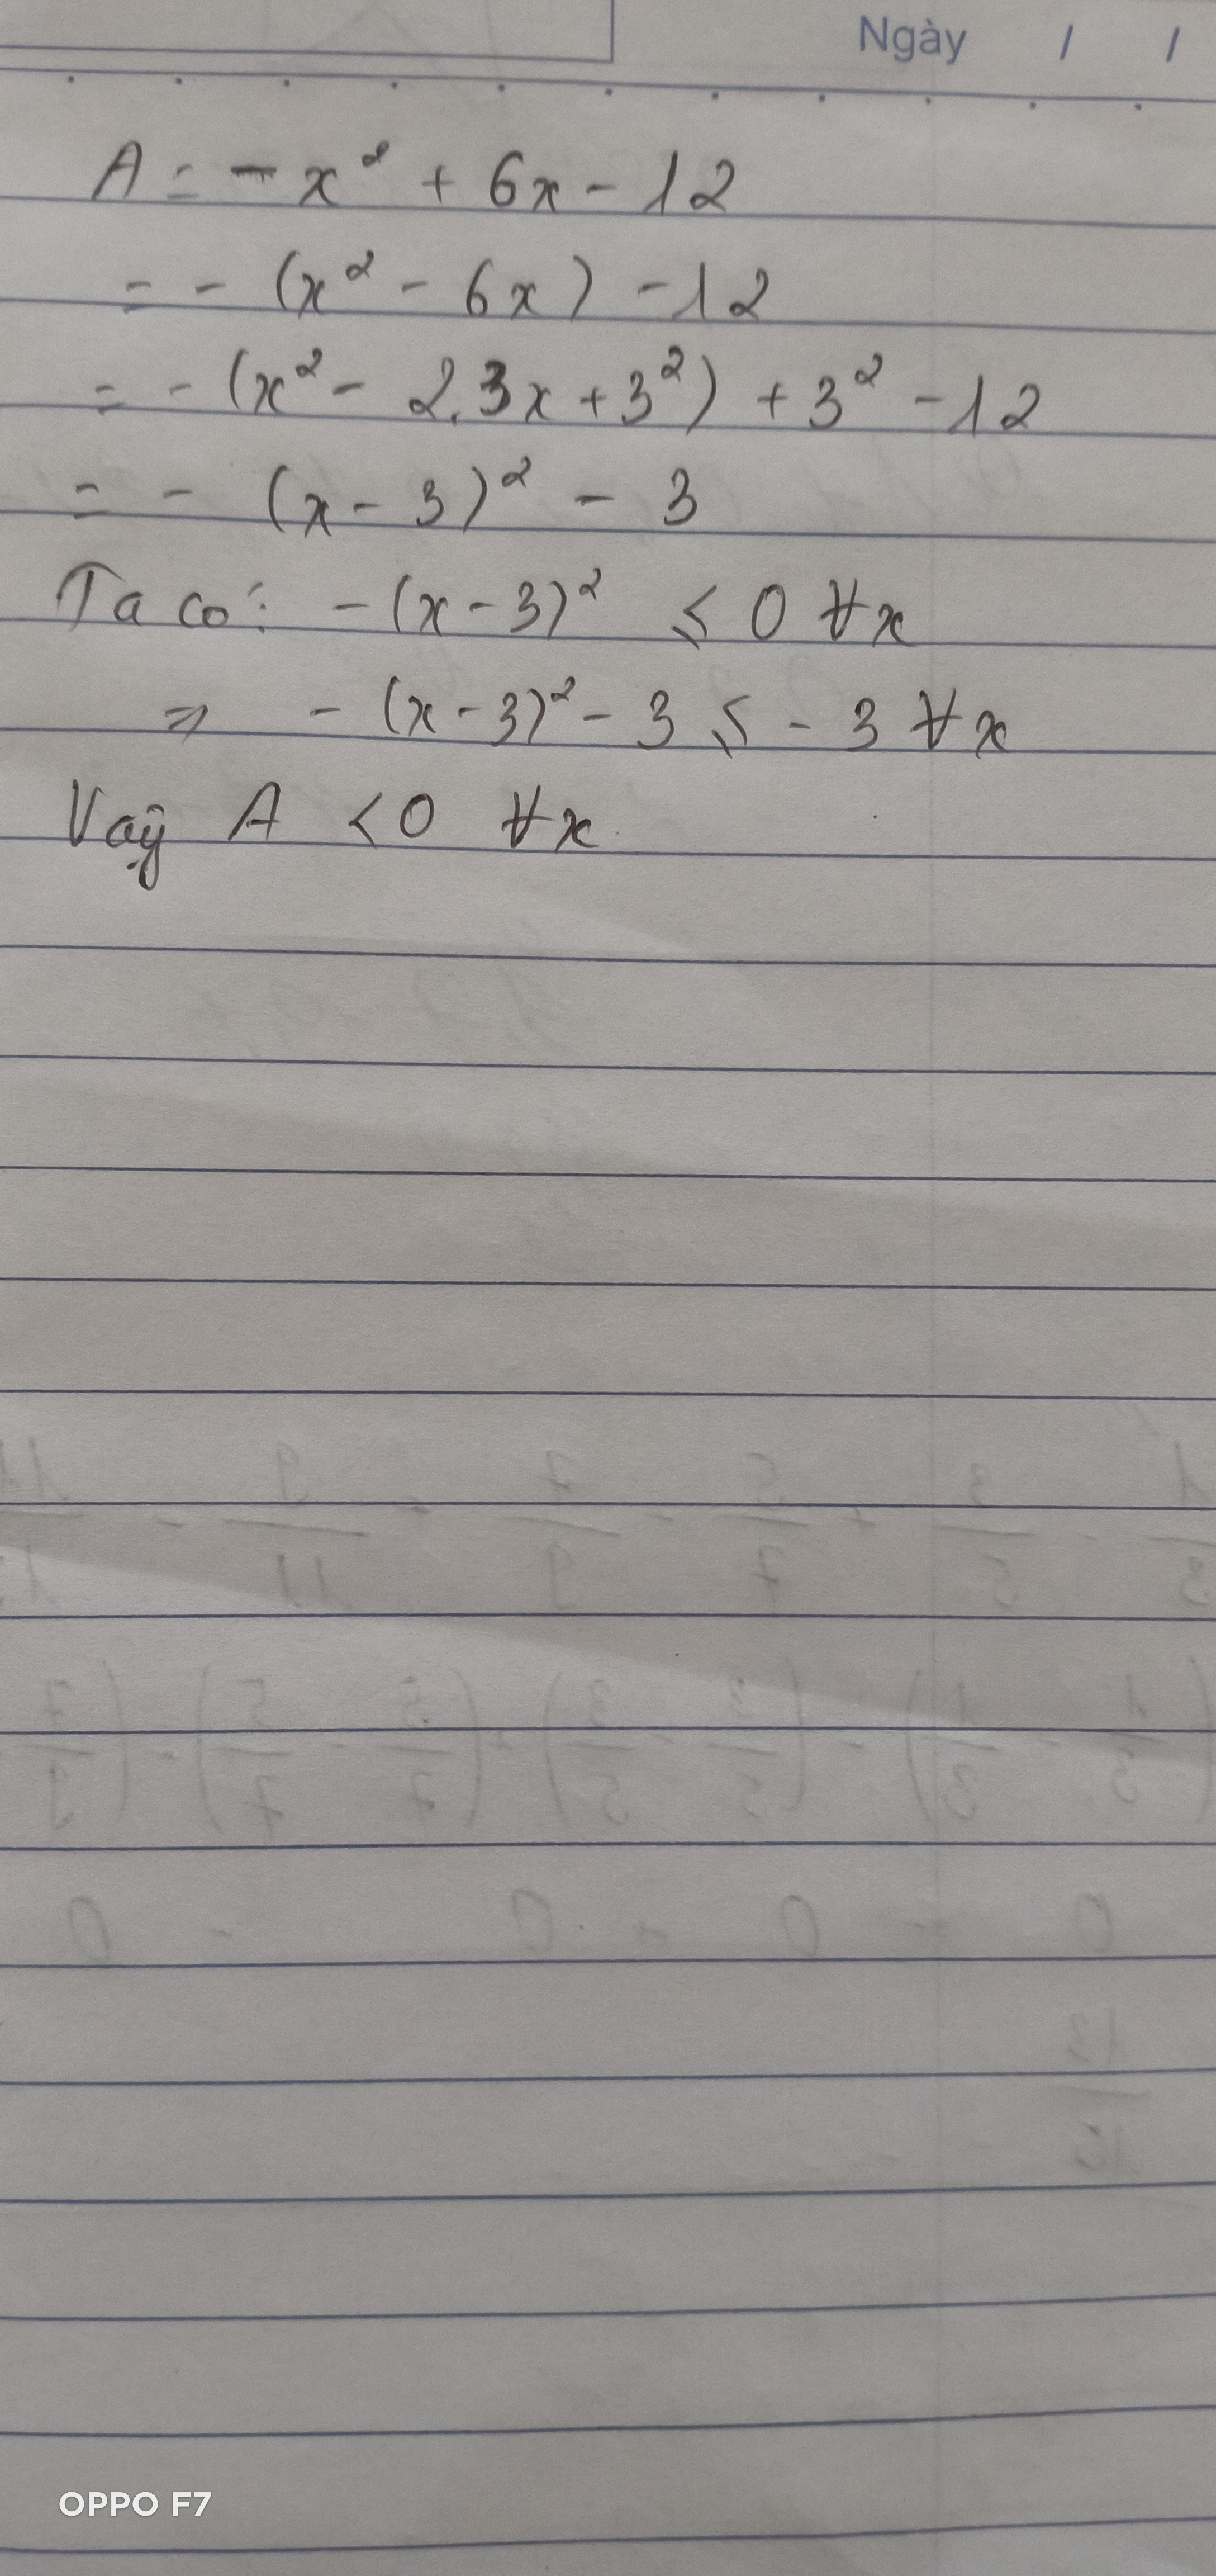 Ngày / /
A = - x² + 6x - 12
= - (x² - 6x) - 12
= - (x² - 2.3x + 3²) + 3² - 12
= - (x - 3)² - 3
Ta có: - (x - 3)² ≤ 0 ∀x
⇒ - (x - 3)² - 3 ≤ - 3 ∀x
Vậy A < 0 ∀x
OPPO F7